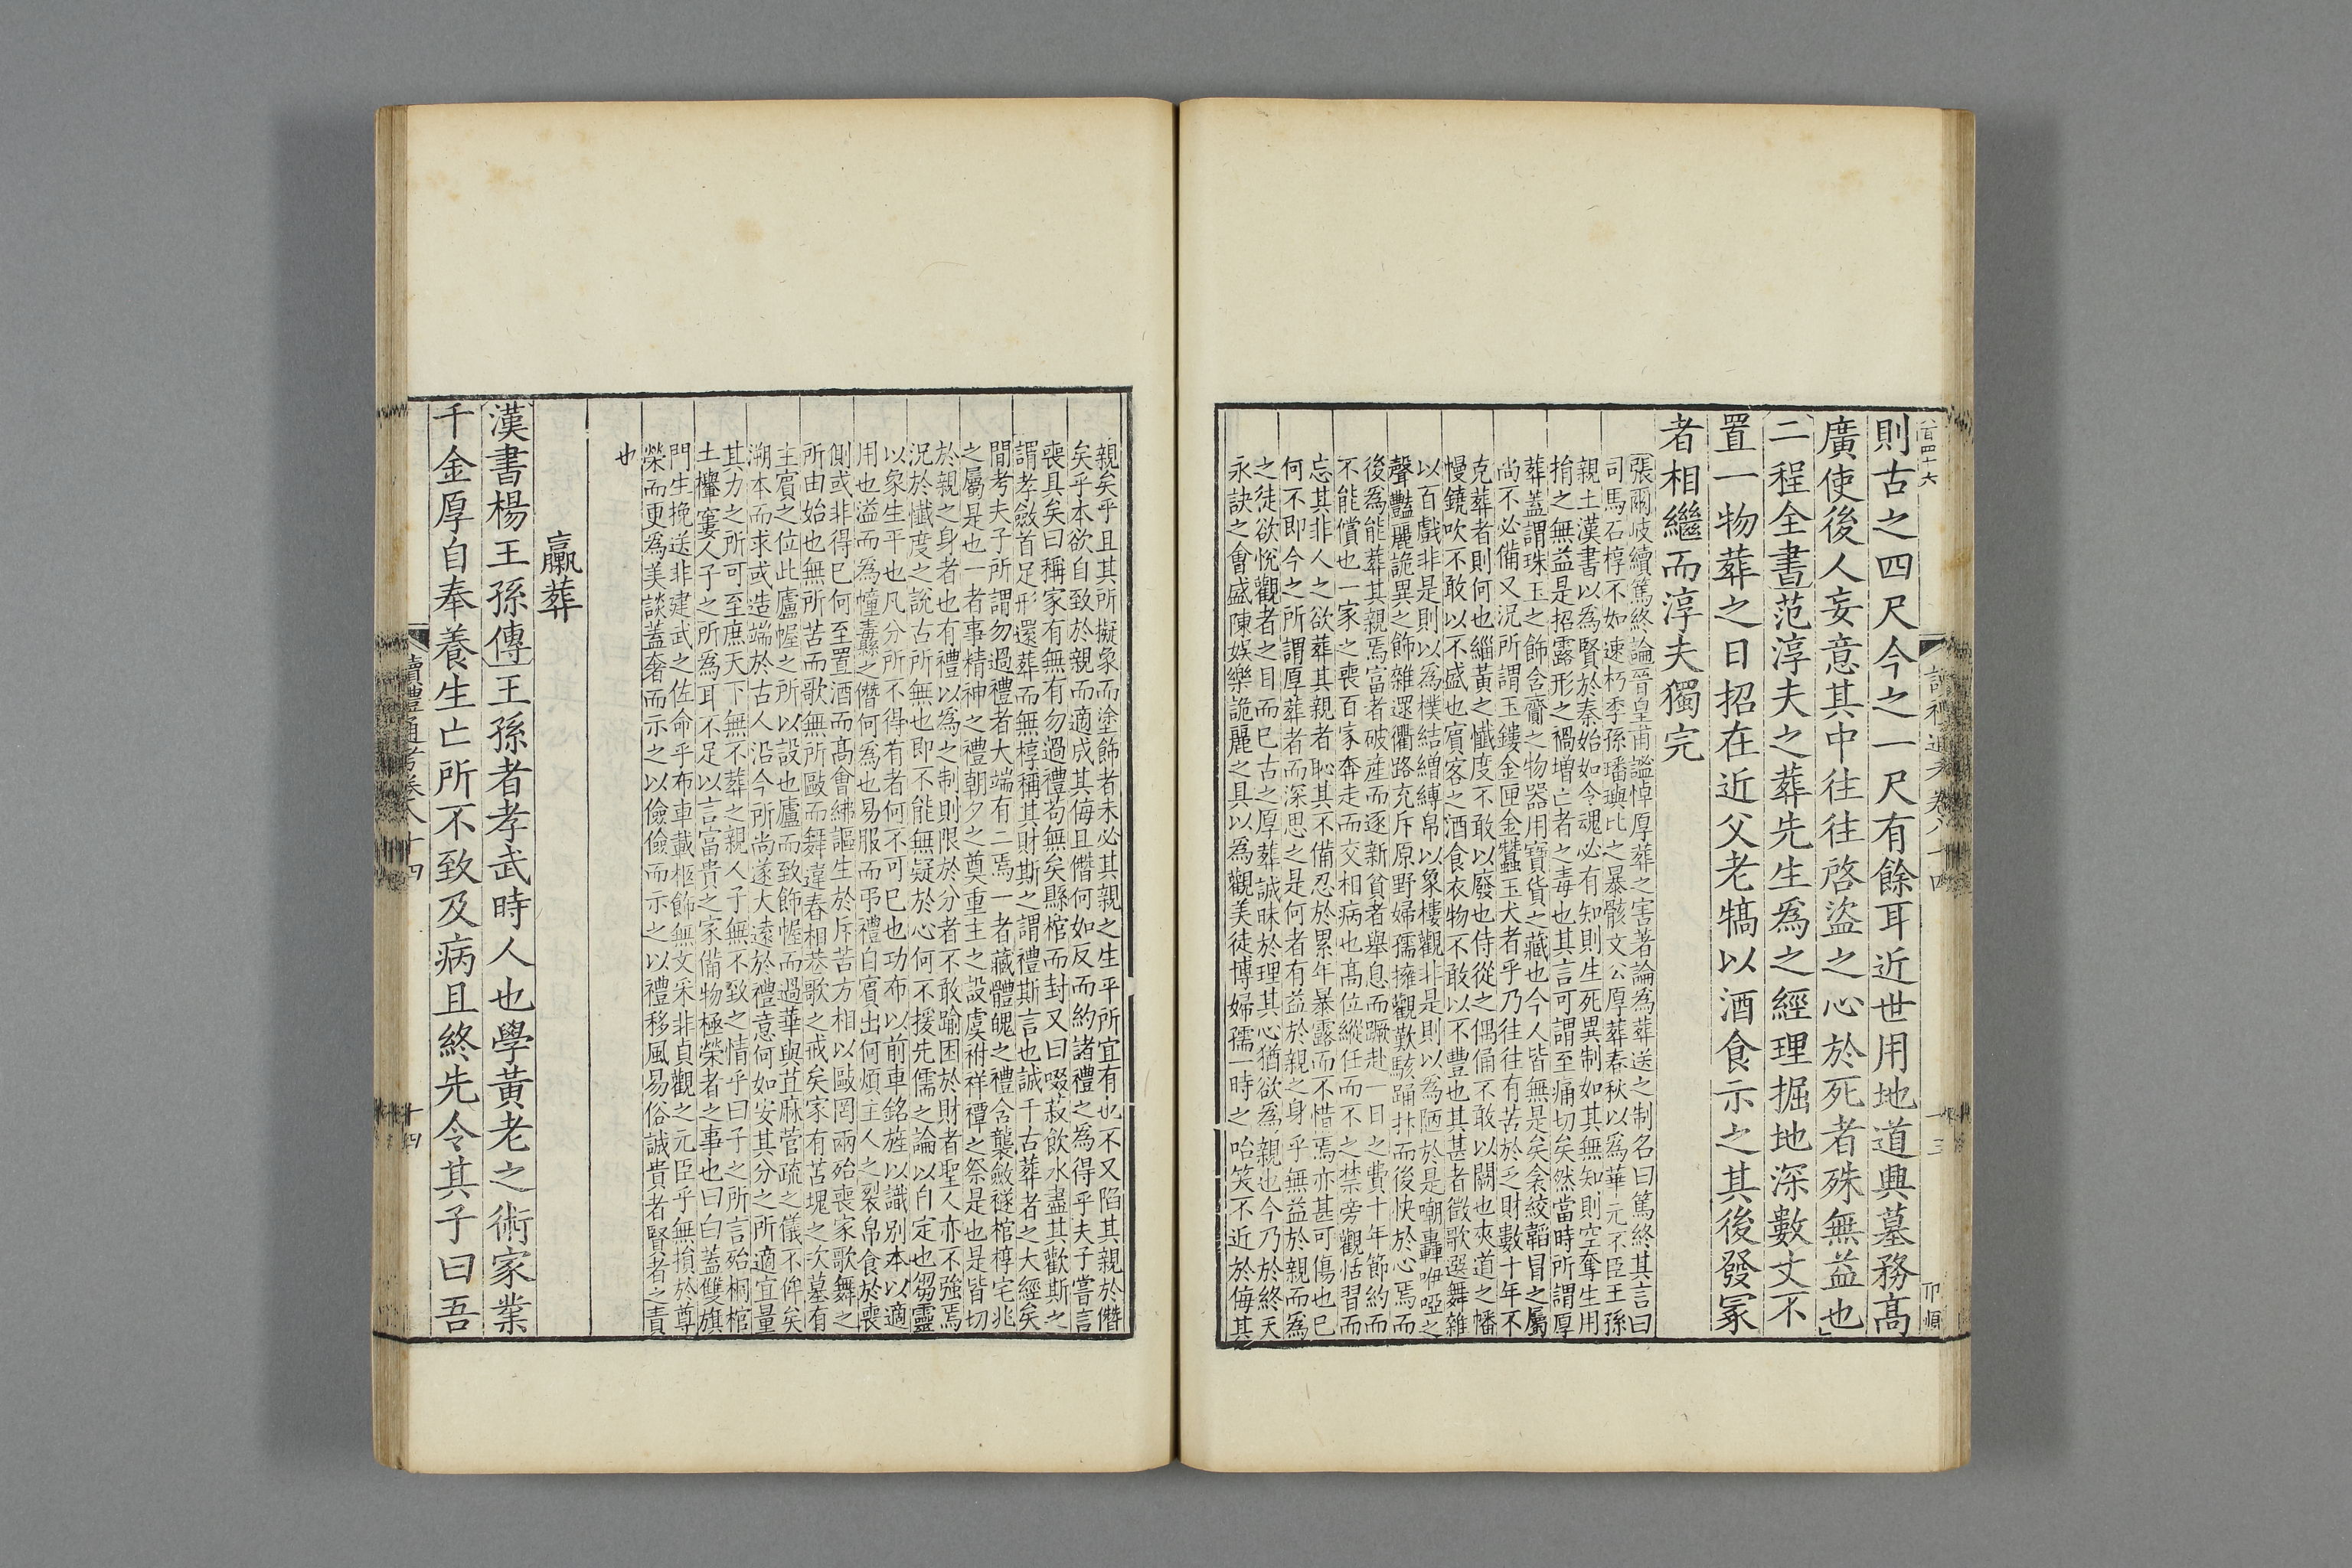 則古之四尺今之一尺有餘耳近世用地道典墓務髙
廣使後人妄意其中往往啓盜之心於死者殊無益也
二程全書范淳夫之葬先生爲之經理掘地深數丈不
置一物葬之日招在近父老犒以酒食示之其後發冡
者相繼而淳夫獨完
張爾岐續篤終論晉皇甫謐悼厚葬之害著論爲葬送之制名曰篤終其言曰
司馬石椁不如速朽季孫璠璵比之暴骸文公厚葬春秋以爲華元不臣王孫
親土漢書以爲賢於秦始如令魂必有知則生死異制如其無知則空奪生用
捐之無益是招露形之禍增亡者之毒也其言可謂至痛切矣然當時所謂厚
葬蓋謂珠玉之飾含齎之物器用寶貨之藏也今人皆無是矣衾絞韜冒之屬
尚不必備又況所謂玉鏤金匣金蠶玉犬者乎乃往往有苦於乏財數十年不
克葬者則何也緇黃之懺度不敢以廢也侍從之偶俑不敢以闕也夾道之幡
幔鐃吹不敢以不盛也賓客之酒食衣物不敢以不豐也其甚者徵歌選舞雜
以百戲非是則以爲樸結繒縛帛以象樓觀非是則以爲陋於是嘲轟咿啞之
聲豔麗詭異之飾雜遝衢路充斥原野婦孺擁觀歎駭踊抃而後快於心焉而
後爲能葬其親焉富者破產而逐新貧者舉息而蹶赴一日之費十年節約而
不能償也一家之喪百家奔走而交相病也髙位縱任而不之禁旁觀恬習而
忘其非人之欲葬其親者恥其不備忍於累年暴露而不惜焉亦甚可傷也已
何不即今之所謂厚葬者而深思之是何者有益於親之身乎無益於親而爲
之徒欲悅觀者之目而已古之厚葬誠昧於理其心猶欲爲親也今乃於終天
永訣之會盛陳娛樂詭麗之具以爲觀美徒博婦孺一時之咍笑不近於侮其
親矣乎且其所擬象而塗飾者未必其親之生平所宜有也不又陷其親於僭
矣乎本欲自致於親而適成其侮且僭何如反而約諸禮之爲得乎夫子嘗言
喪具矣曰稱家有無有勿過禮苟無矣縣棺而封又曰啜菽飲水盡其歡斯之
謂孝斂首足形還葬而無椁稱其財斯之謂禮斯言也誠千古葬者之大經矣
間考夫子所謂勿過禮者大端有二焉一者藏體魄之禮含襲斂襚棺椁宅兆
之屬是也一者事精神之禮朝夕之奠重主之設虞祔祥禫之祭是也是皆切
於親之身者也有禮以爲之制則限於分者不敢踰困於財者聖人亦不強焉
況於懺度之說古所無也即不能無疑於心何不援先儒之論以自定也芻靈
以象生平也凡分所不得有者何不可已也功布以前車銘旌以識別本以適
用也溢而爲幢纛縣之僭何爲也易服而弔禮自賓出何煩主人之裂帛食於喪
側或非得已何至置酒而髙會紼謳生於斥苦方相以毆罔兩殆喪家歌舞之
所由始也無所苦而歌無所毆而舞違舂相巷歌之戒矣家有苫塊之次墓有
主賓之位此廬幄之所以設也廬而致飾幄而過華與苴麻菅疏之儀不侔矣
溯本而求或造端於古人沿今所尚遂大遠於禮意何如安其分之所適宜量
其力之所可至庶天下無不葬之親人子無不致之情乎曰子之所言殆桐棺
土欙窶人子之所爲耳不足以言富貴之家備物極榮者之事也曰白蓋雙旗
門生挽送非建武之佐命乎布車載柩飾無文采非貞觀之元臣乎無損於尊
榮而更爲美談蓋奢而示之以儉儉而示之以禮移風易俗誠貴者賢者之責
也
臝葬
漢書楊王孫傳王孫者孝武時人也學黃老之術家業
千金厚自奉養生亡所不致及病且終先令其子曰吾
讀禮通考卷八十四
十四